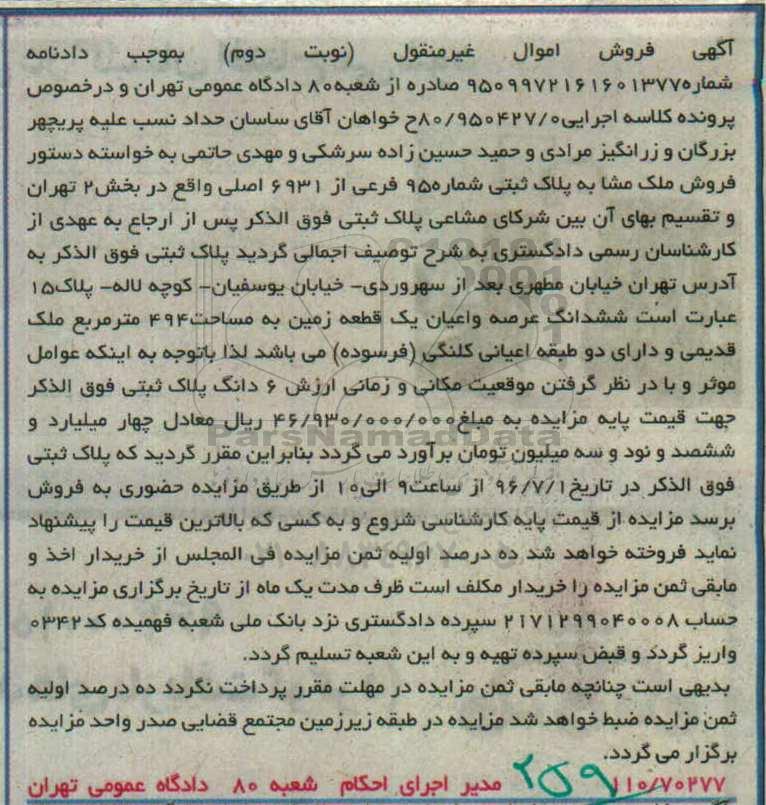 آگهی فروش اموال غیرمنقول (نوبت دوم) بموجب دادنامه
شماره۹۵۰۹۹۷۲۱۶۱۶۰۱۳۷۷ صادره از شعبه۸۰ دادگاه عمومی تهران و درخصوص
پرونده کلاسه اجرایی۸۰/۹۵۰۴۲۷/۰ح خواهان آقای ساسان حداد نسب علیه پریچهر
بزرگان و زرانگیز مرادی و حمید حسین زاده سرشکی و مهدی حاتمی به خواسته دستور
فروش ملک مشا به پلاک ثبتی شماره۹۵ فرعی از ۶۹۳۱ اصلی واقع در بخش۲ تهران
و تقسیم بهای آن بین شرکای مشاعی پلاک ثبتی فوق الذکر پس از ارجاع به عهدی از
کارشناسان رسمی دادگستری به شرح توصیف اجمالی گردید پلاک ثبتی فوق الذکر به
آدرس تهران خیابان مطهری بعد از سهروردی- خیابان یوسفیان- کوچه لاله- پلاک۱۵
عبارت است ششدانگ عرصه واعیان یک قطعه زمین به مساحت۴۹۴ مترمربع ملک
قدیمی و دارای دو طبقه اعیانی کلنگی (فرسوده) می باشد لذا باتوجه به اینکه عوامل
موثر و با در نظر گرفتن موقعیت مکانی و زمانی ارزش ۶ دانگ پلاک ثبتی فوق الذکر
جهت قیمت پایه مزایده به مبلغ۴۶/۹۳۰/۰۰۰/۰۰۰ ریال معادل چهار میلیارد و
ششصد و نود و سه میلیون تومان برآورد می گردد بنابراین مقرر گردید که پلاک ثبتی
فوق الذکر در تاریخ۹۶/۷/۱ از ساعت۹ الی۱۰ از طریق مزایده حضوری به فروش
برسد مزایده از قیمت پایه کارشناسی شروع و به کسی که بالاترین قیمت را پیشنهاد
نماید فروخته خواهد شد ده درصد اولیه ثمن مزایده فی المجلس از خریدار اخذ و
مابقی ثمن مزایده را خریدار مکلف است ظرف مدت یک ماه از تاریخ برگزاری مزایده به
حساب ۲۱۷۱۲۹۹۰۴۰۰۰۸ سپرده دادگستری نزد بانک ملی شعبه فهمیده کد۰۳۴۲
واریز گردد و قبض سپرده تهیه و به این شعبه تسلیم گردد.
بدیهی است چنانچه مابقی ثمن مزایده در مهلت مقرر پرداخت نگردد ده درصد اولیه
ثمن مزایده ضبط خواهد شد مزایده در طبقه زیرزمین مجتمع قضایی صدر واحد مزایده
برگزار می گردد.
۱۱۰/۷۰۲۷۷ مدیر اجرای احکام شعبه ۸۰ دادگاه عمومی تهران
ParsNamadData